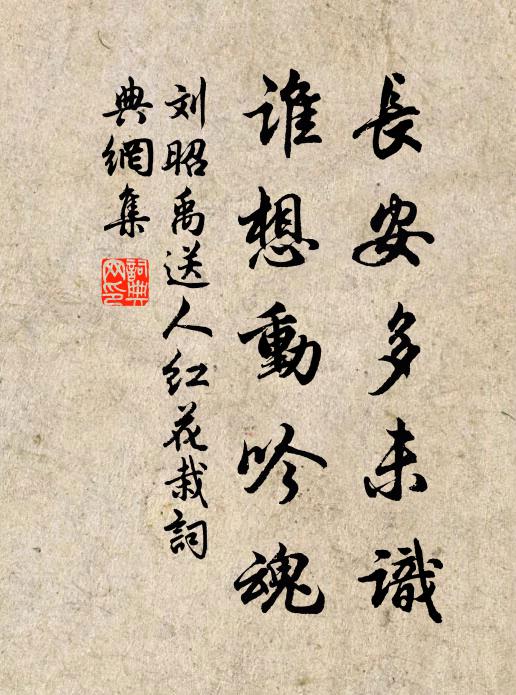 長安多未識
誰想動吟魂
刘昭禹送人红花栽詞
典網集
詞典网印